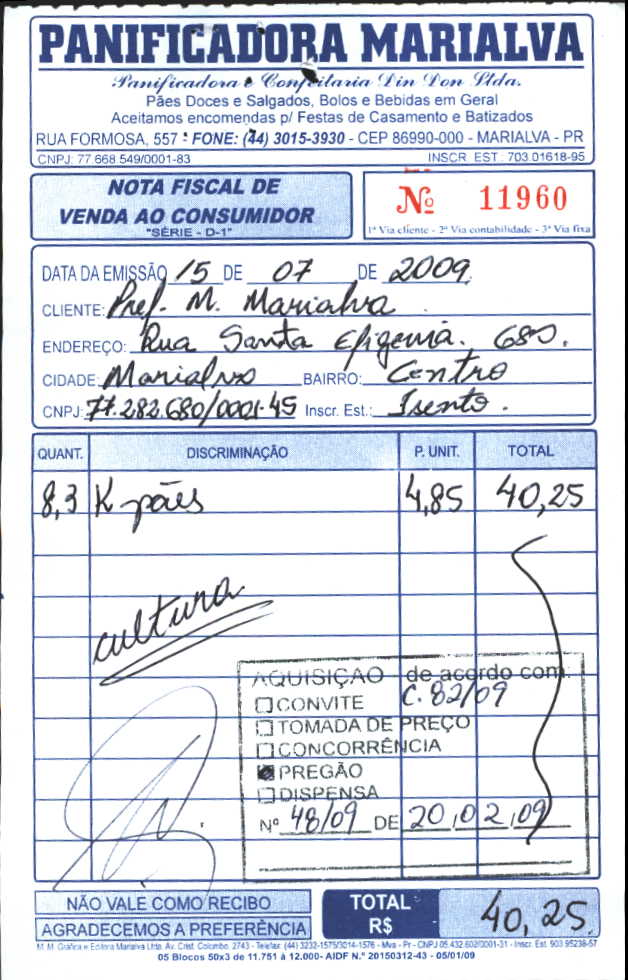 PANIFICADORA MARIALVA
Panificadora e Confeitaria Din Don Ltda.
Pães Doces e Salgados, Bolos e Bebidas em Geral
Aceitamos encomendas p/ Festas de Casamento e Batizados
RUA FORMOSA, 557 - FONE: (44) 3015-3930 - CEP 86990-000 - MARIALVA - PR
CNPJ: 77.668.549/0001-83 INSCR. EST. 703.01618-95
NOTA FISCAL DE
VENDA AO CONSUMIDOR
"SÉRIE - D-1"
Nº 11960
1ª Via cliente - 2ª Via contabilidade - 3ª Via fixa
DATA DA EMISSÃO 15 DE 07 DE 2009
CLIENTE: Pref. M. Marialva
ENDEREÇO: Rua Santa Efigenia. 680.
CIDADE: Marialva BAIRRO: Centro
CNPJ: 77.282.680/0001-45 Inscr. Est.: Isento.
QUANT. DISCRIMINAÇÃO P. UNIT. TOTAL
8,3 K pães 4,85 40,25
cultura
AQUISIÇÃO de acordo com:
CONVITE C. 82/09
TOMADA DE PREÇO
CONCORRÊNCIA
PREGÃO
DISPENSA
Nº 48/09 DE 20,02,09
NÃO VALE COMO RECIBO
AGRADECEMOS A PREFERÊNCIA
TOTAL
R$ 40,25.
M. M. Gráfica e Editora Marialva Ltda. Av. Crist. Colombo, 2743 - Telefax: (44) 3232-1575/3014-1576 - Mva - Pr - CNPJ 05.432.602/0001-31 - Inscr. Est. 903.95238-57
05 Blocos 50x3 de 11.751 à 12.000- AIDF N.º 20150312-43 - 05/01/09